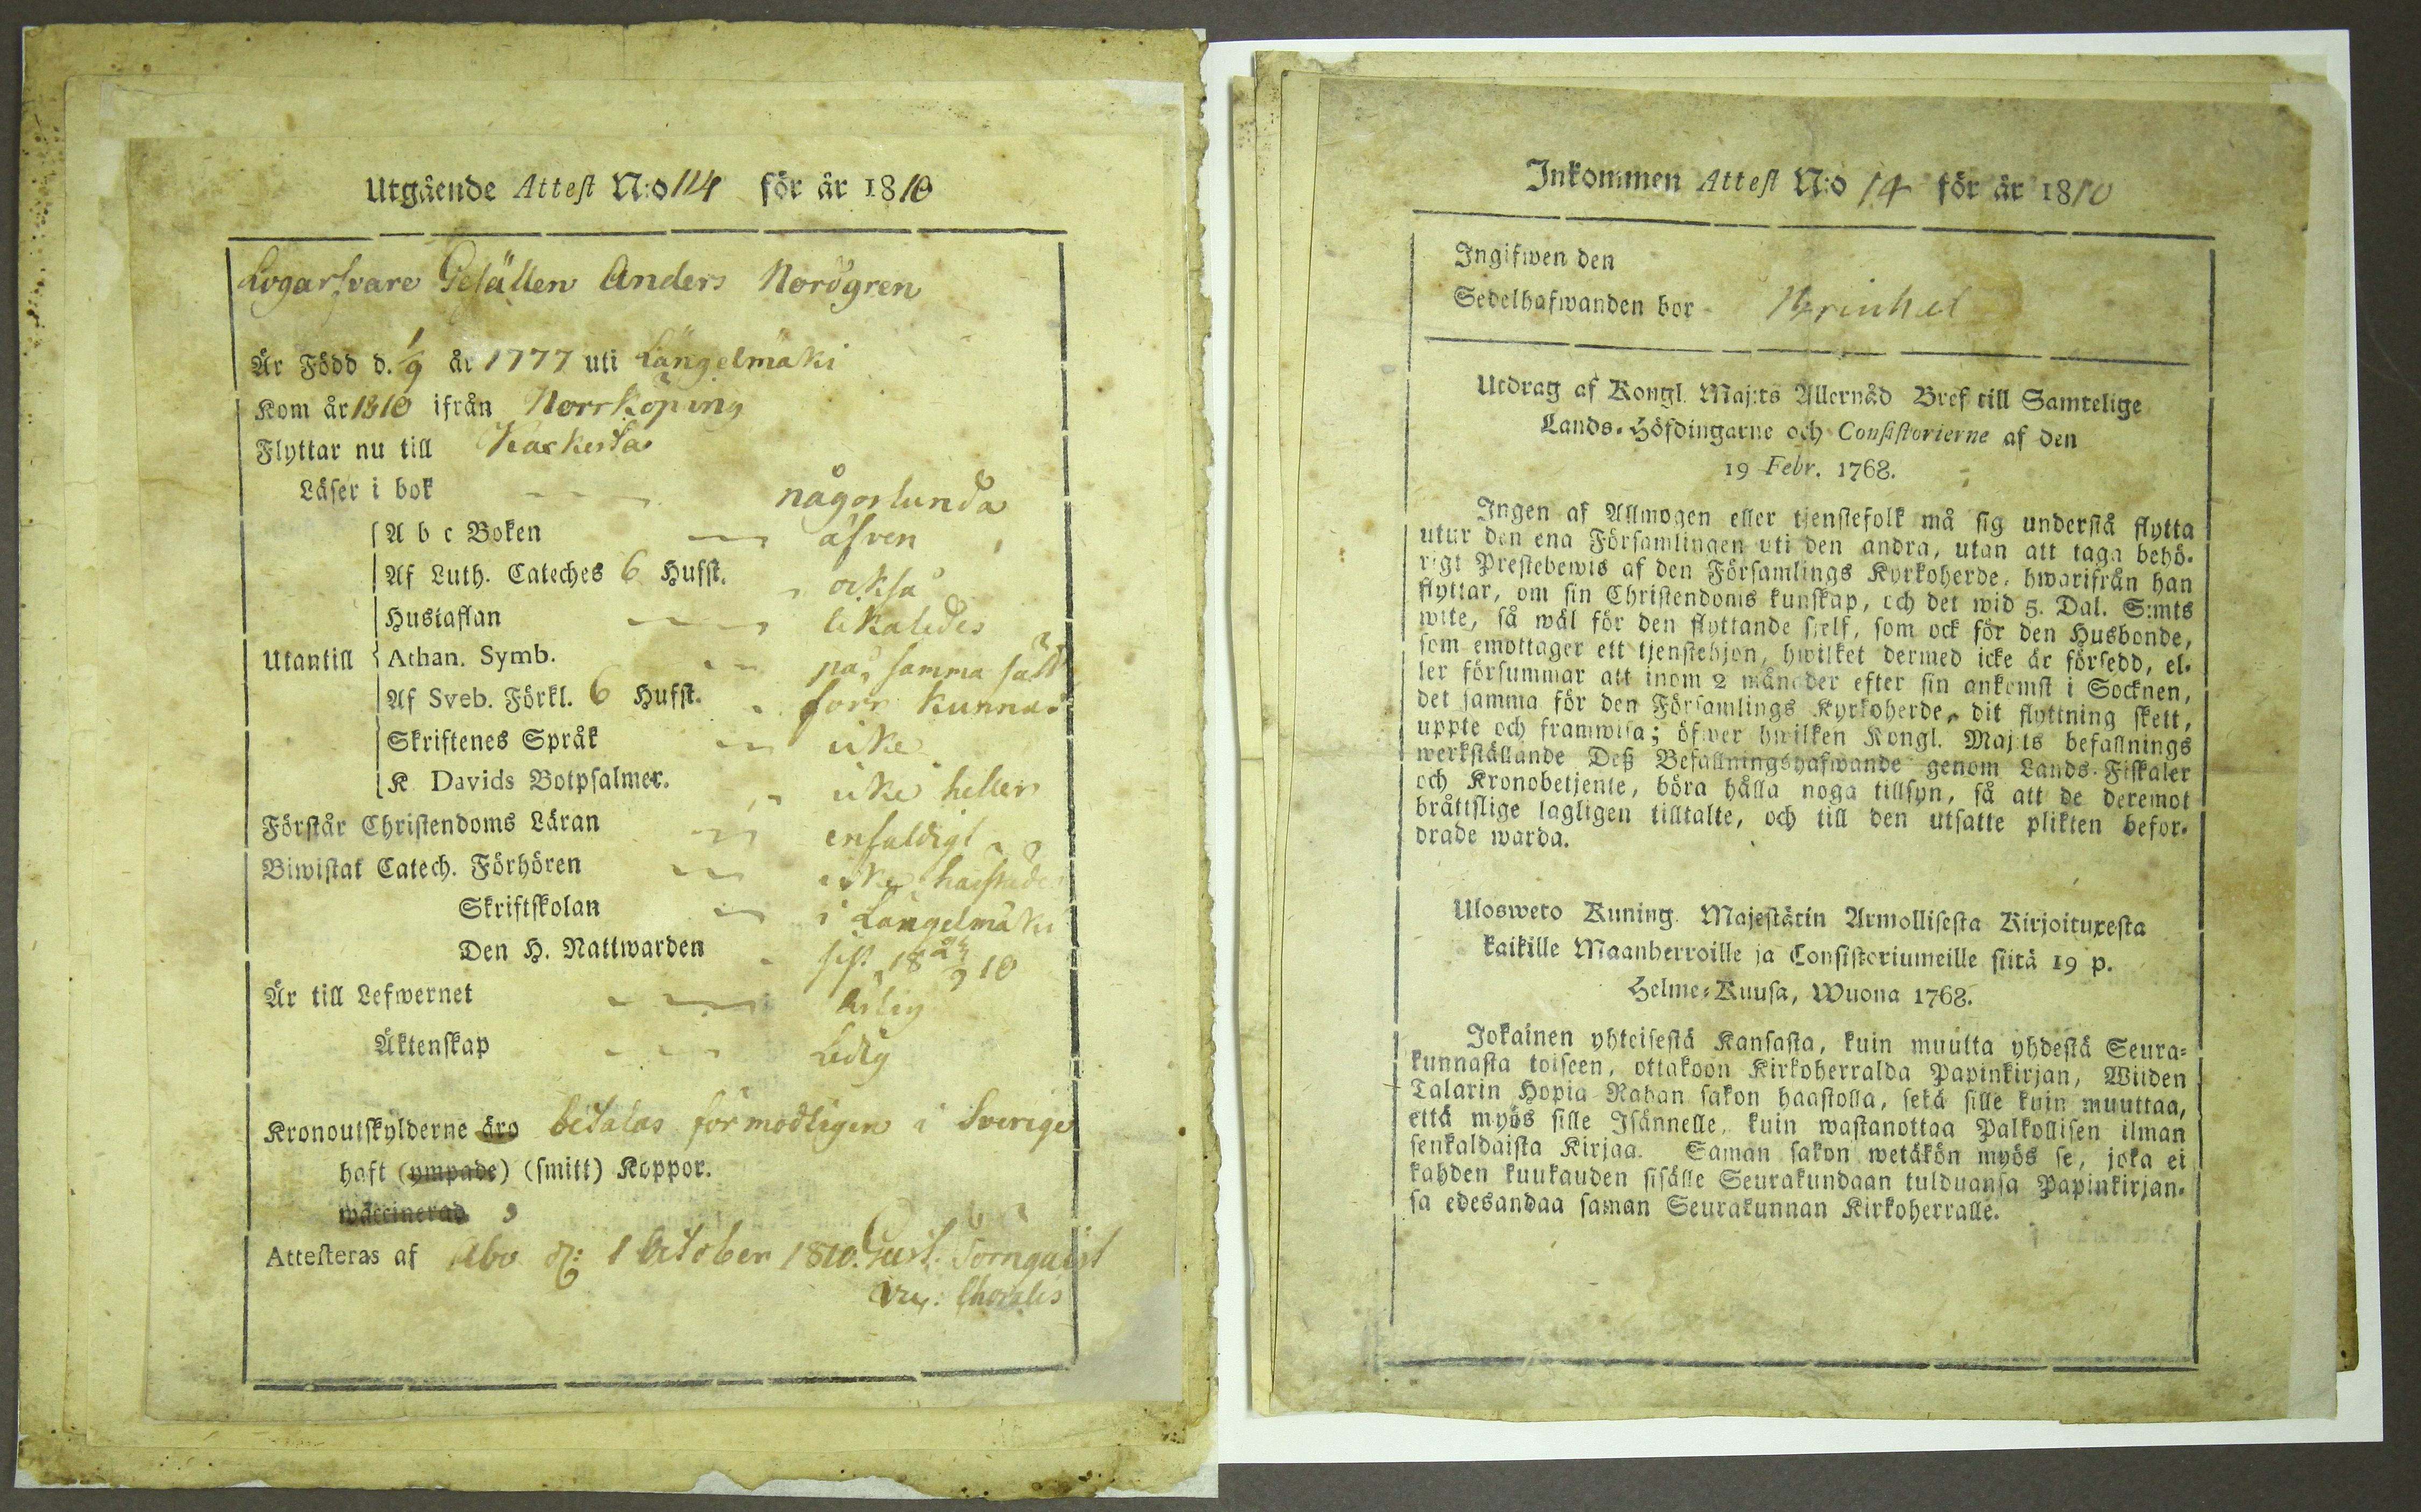 Utgående Attest N:o 114 för år 1810
Logarfvare Gesällen Anders Nordgren
Är Född d. 1/9 år 1777 uti Längelmäki
Kom år 1810 ifrån Norrköping
Flyttar nu till Kaskerta
Läser i bok någorlunda
A b c Boken äfven
Af Luth. Cateches 6 Hufst. också
Hustaflan likaledes
Utantill Athan. Symb. på samma sätt
Af Sveb. Förkl. 6 Hufst. förr kunnat
Skriftenes Språk icke
K Davids Botpsalmer. icke heller
Förstår Christendoms Läran enfaldigt
Biwistat Catech. Förhören icke härstädes
Skriftskolan i Längelmäki
Den H. Nattwarden sist 18 10
Är till Lefwernet ärlig
Äktenskap Ledig
Kronoutskylderne äro betalas förmodligen i Sverige
haft (ympade) (smitt) Koppor.
waccinerad
Attesteras af Åbo d: 1 October 1810. Gust. Törnquist
Choralis
Inkommen Attest N:o 14 för år 1810
Ingifwen den
Sedelhafwanden bor Brinkal
Utdrag af Kongl. Maj:ts Allernåd Bref till Samtelige
Lands-Höfdingarne och Consistorierne af den
19 Febr. 1768.
Ingen af Allmogen eller tjenstefolk må sig understå flytta
utur den ena Församlingen uti den andra, utan att taga behö-
rigt Prestebewis af den Församlings Kyrkoherde, hwarifrån han
flyttar, om sin Christendoms kunskap, och det wid 5. Dal. S:mts
wite, så wäl för den flyttande sjelf, som ock för den Husbonde,
som emottager ett tjenstehjon, hwilket dermed icke är försedd, el-
ler försummar att inom 2 månader efter sin ankomst i Socknen,
det samma för den Församlings Kyrkoherde, dit flyttning skett,
uppte och framwisa; öfwer hwilken Kongl. Maj:ts befallnings
werkställande Deß Befallningshafwande genom Lands-Fiskaler
och Kronobetjente, böra hålla noga tillsyn, så att de deremot
bråttslige lagligen tilltalte, och till den utsatte plikten befor-
drade warda.
Ulosweto Kuning. Majestätin Armollisesta Kirjoituxesta
kaikille Maanherroille ja Consistoriumeille siitä 19 p.
Helme-Kuusa, Wuona 1768.
Jokainen yhteisestä Kansasta, kuin muutta yhdestä Seura-
kunnasta toiseen, ottakoon Kirkoherralda Papinkirjan, Wiiden
Talarin Hopia Rahan sakon haastolla, sekä sille kuin muuttaa,
että myös sille Isännelle, kuin wastanottaa Palkollisen ilman
senkaldaista Kirjaa. Saman sakon wetäkön myös se, joka ei
kahden kuukauden sisälle Seurakundaan tulduansa Papinkirjan-
sa edesandaa saman Seurakunnan Kirkoherralle.